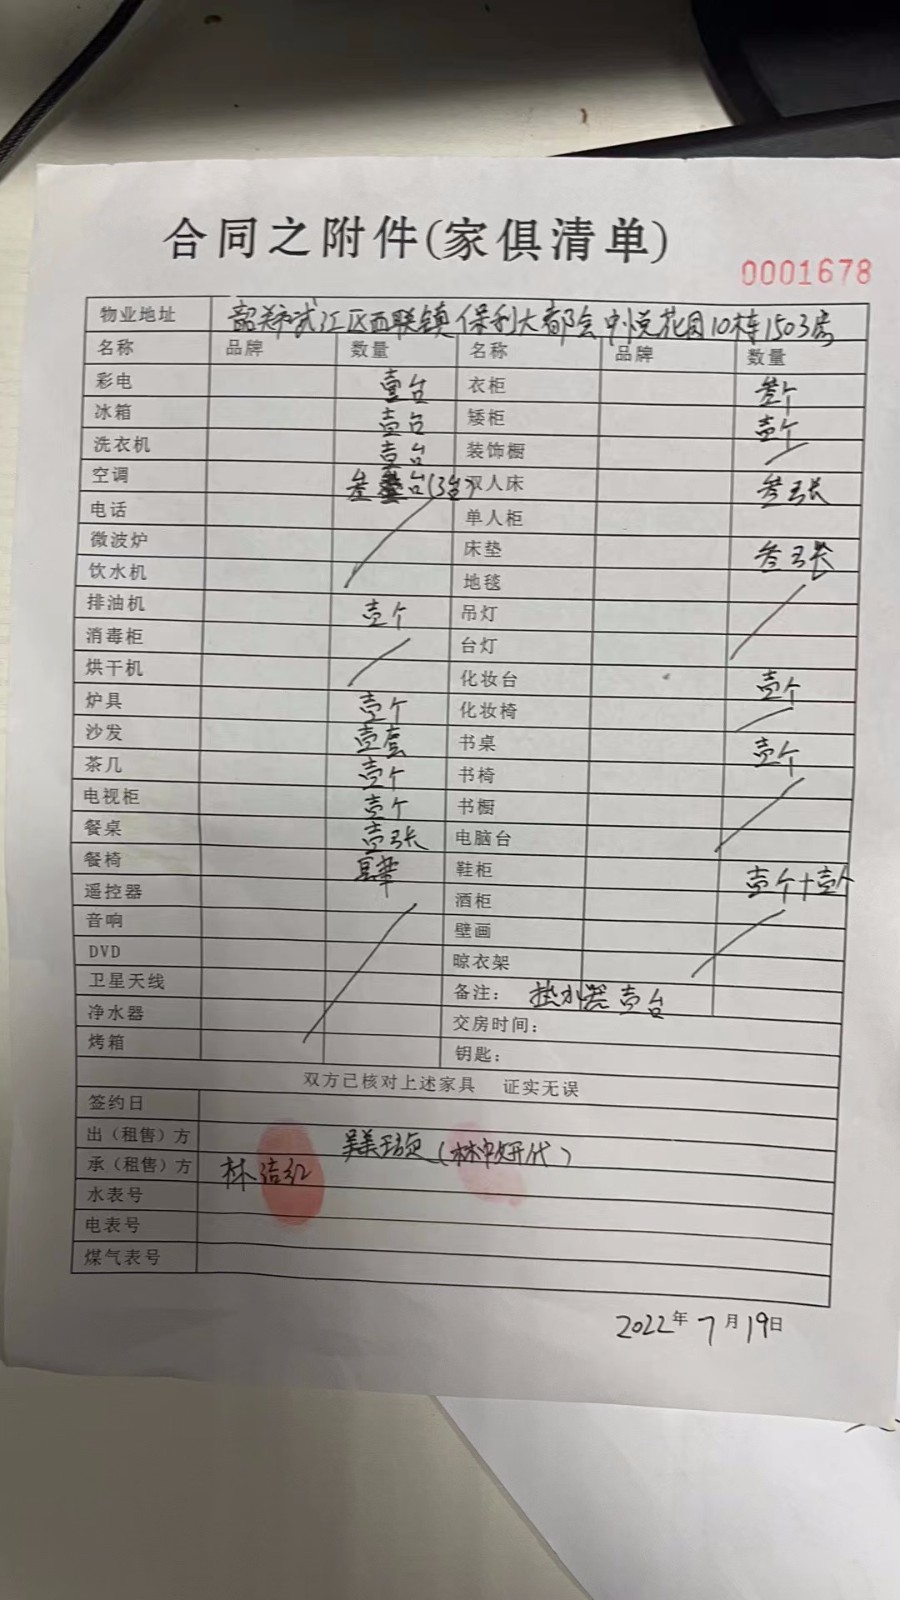 合同之附件(家俱清单)
0001678
物业地址 韶关市武江区西联镇保利大都会中悦花园10栋1503房
名称 品牌 数量 名称 品牌 数量
彩电 壹台 衣柜 叁个
冰箱 壹台 矮柜 壹个
洗衣机 壹台 装饰橱
空调 叁台(3台) 双人床 叁张
电话 单人柜
微波炉 床垫 叁张
饮水机 地毯
排油机 壹个 吊灯
消毒柜 台灯
烘干机 化妆台 壹个
炉具 壹个 化妆椅
沙发 壹套 书桌 壹个
茶几 壹个 书椅
电视柜 壹个 书橱
餐桌 壹张 电脑台
餐椅 肆 鞋柜 壹个+壹个
遥控器 酒柜
音响 壁画
DVD 晾衣架
卫星天线 备注: 热水器壹台
净水器 交房时间:
烤箱 钥匙:
双方已核对上述家具 证实无误
签约日
出（租售）方
承（租售）方 林洁红
水表号
电表号
煤气表号
2022年7月19日